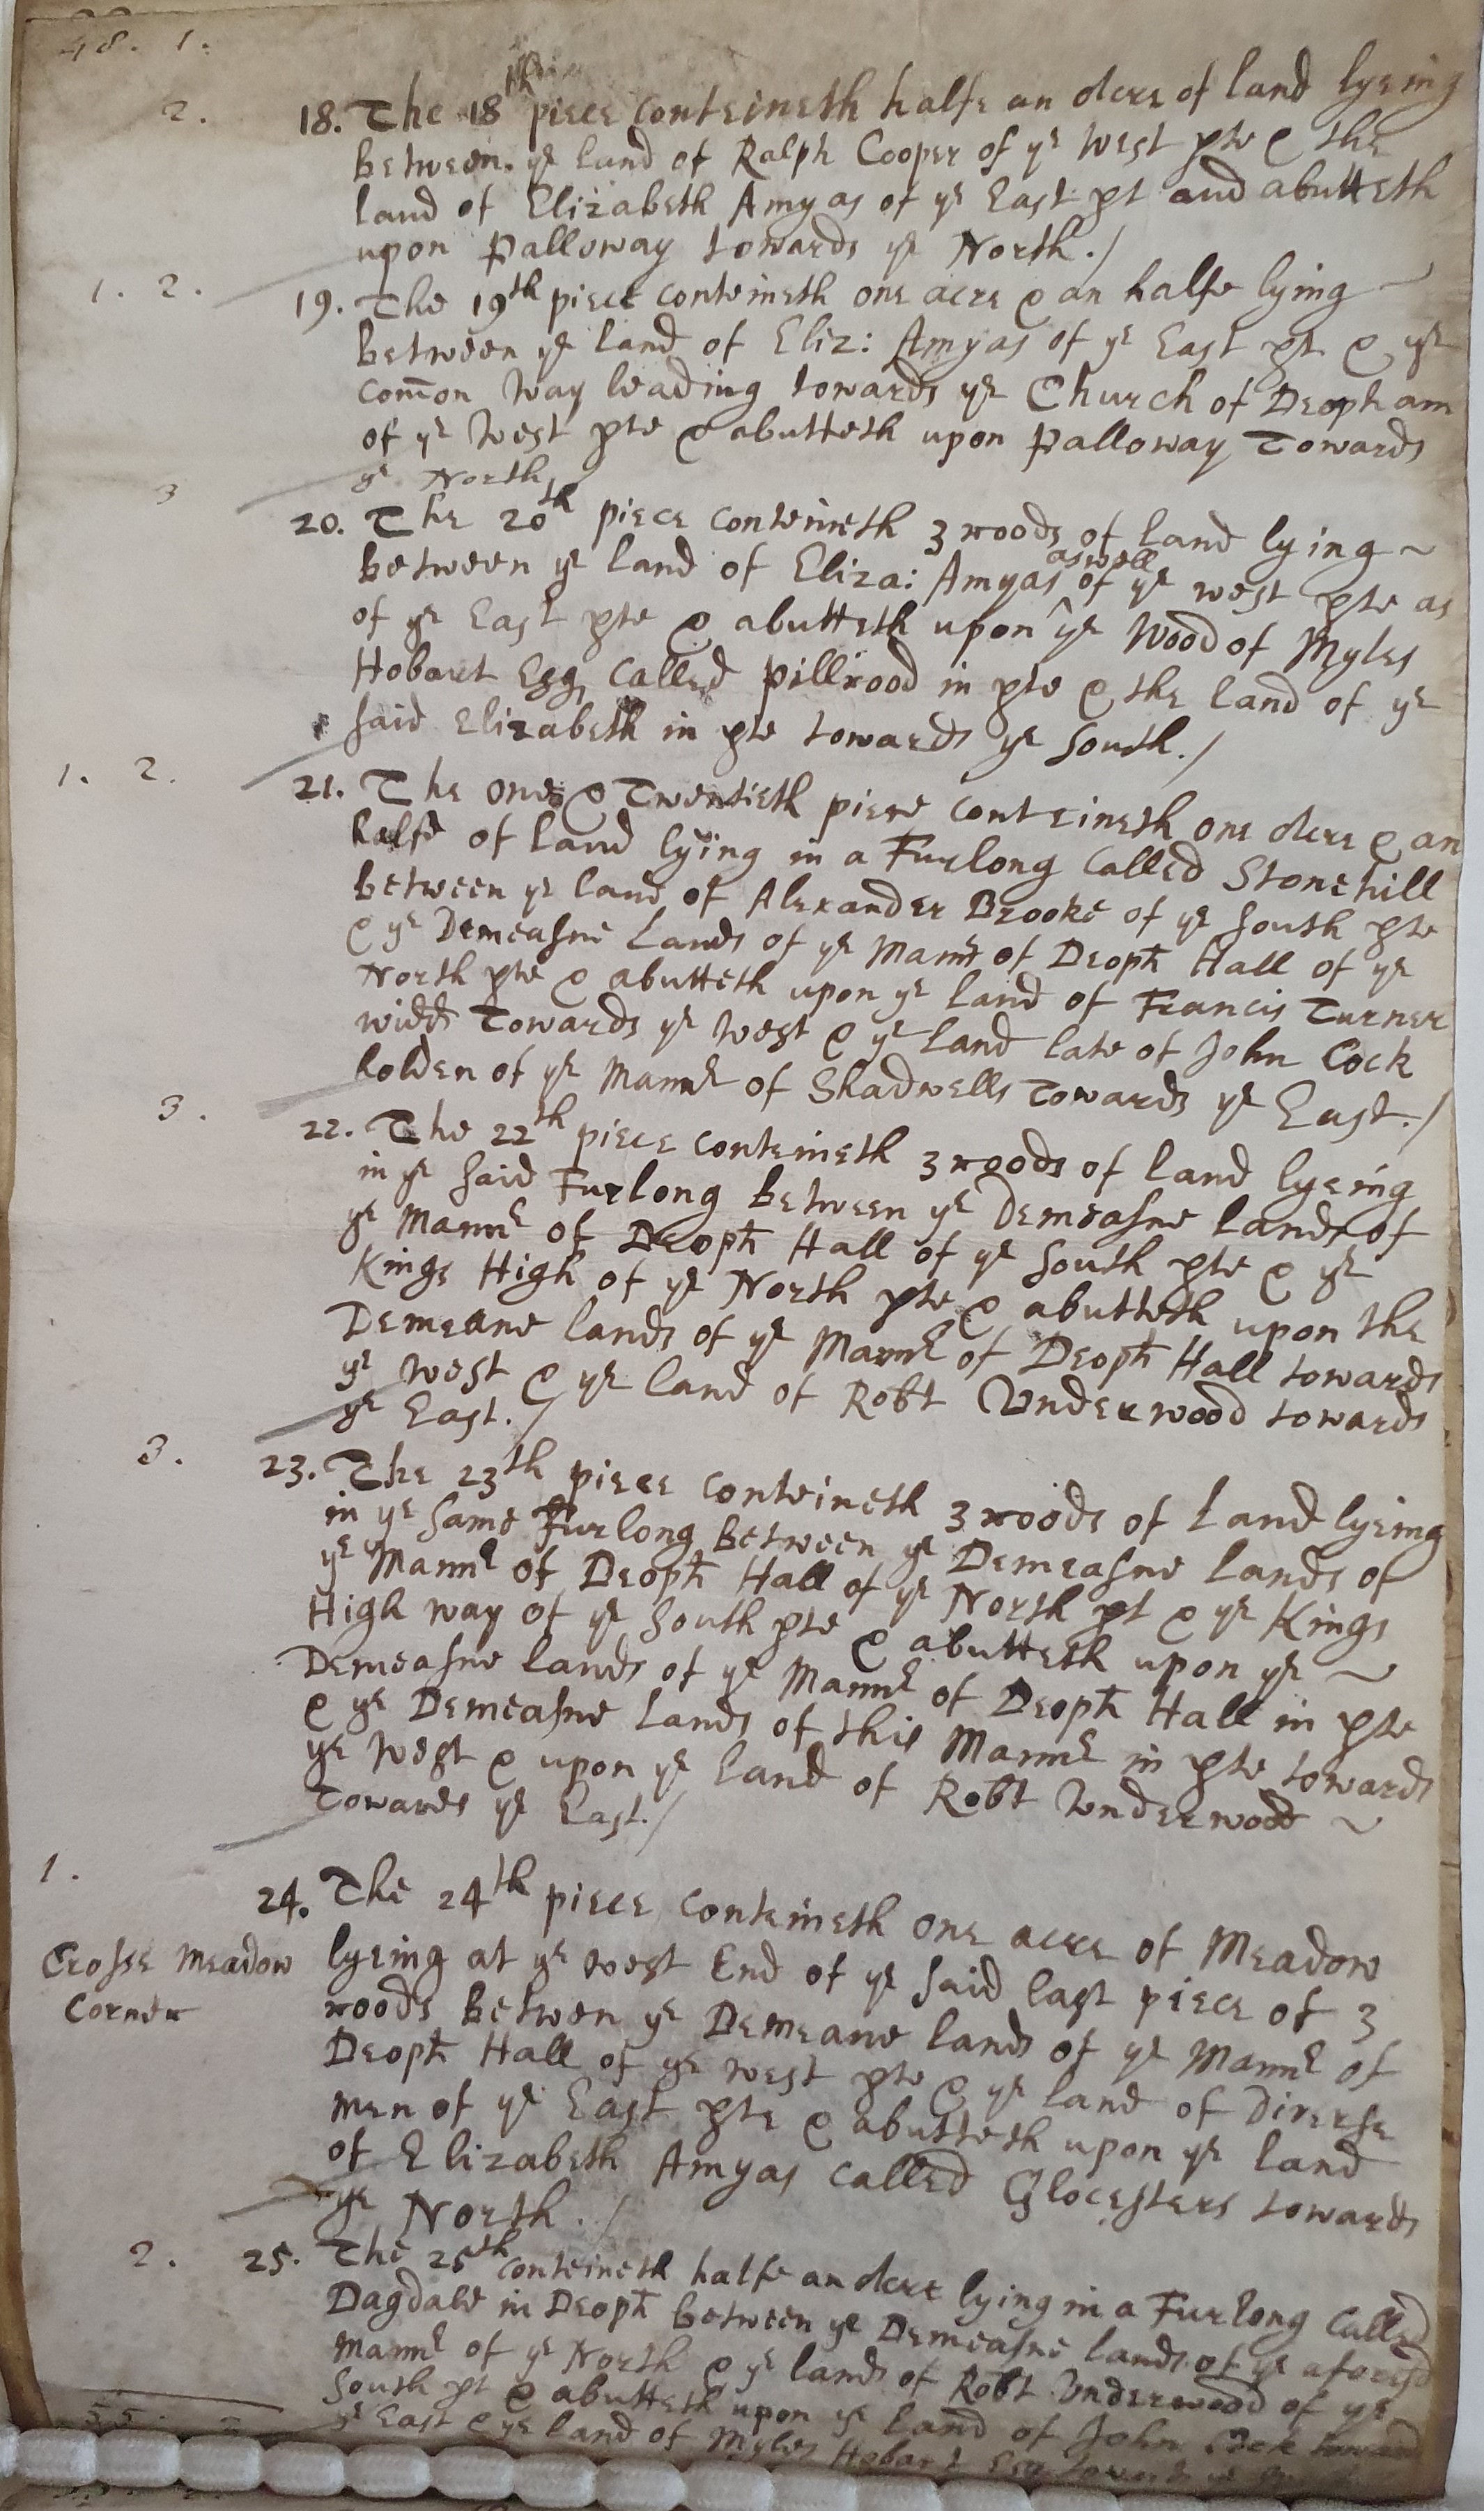 48. 1.
2. 18. The 18th piece conteineth halfe an Acre of land lyeing
between ye land of Ralph Cooper of ye West pte & the
land of Elizabeth Amyas of ye East pt and abutteth
upon Palloway towards ye North./
1. 2. 19. The 19th piece conteineth one acre & an halfe lying
between ye land of Eliz: Amyas of ye East pt & ye
com̄on Way leading towards ye Church of Deopham
of ye West pte & abutteth upon Palloway Towards
ye North./
3 20. The 20th piece conteineth 3 roods of land lying ~
between ye land of Eliza: Amyas aswell of ye west pte as
of ye East pte & abutteth upon ye Wood of Myles
Hobart Esq called Pillwood in pte & the land of ye
said Elizabeth in pte towards ye South./
1. 2. 21. The one & Twentieth piece conteineth one Acre & an
halfe of land lying in a Furlong called Stonehill
between ye land of Alexander Brooke of ye South pte
& ye Demeasne Lands of ye Mannr of Deoph Hall of ye
North pte & abutteth upon ye land of Francis Turner
widd Towards ye West & ye land late of John Cock
holden of ye Mannr of Shadwells Towards ye East./
3. 22. The 22th piece conteineth 3 roods of land lyeing
in ye said Furlong between ye Demeasne lands of
ye Mannr of Deoph Hall of ye South pte & ye
Kings High of ye North pte & abutteth upon the
Demeane lands of ye Mannr of Deoph Hall towards
ye West & ye land of Robt Underwood towards
ye East./
3. 23. The 23th piece conteineth 3 roods of Land lyeing
in ye same Furlong between ye Demeasne lands of
ye Mannr of Deoph Hall of ye North pt & ye Kings
High way of ye South pte & abutteth upon ye ~
Demeasne lands of ye Mannr of Deoph Hall in pte
& ye Demeasne Lands of this Mannr in pte towards
ye West & upon ye land of Robt Underwood ~
Towards ye East./
1. 24. The 24th piece conteineth one acre of Meadow
Crosse Meadow lyeing at ye West End of ye said last piece of 3
Corner roods betwen ye Demeane lands of ye Mannr of
Deoph Hall of ye west pte & ye land of Diverse
men of ye East pte & abutteth upon ye land
of Elizabeth Amyas called Glocesters towards
ye North./
2. 25. The 25th conteineth halfe an Acre lying in a Furlong Called
Dagdale in Deoph between ye Demeasne lands of ye aforesd
Mannr of ye North & ye lands of Robt Underwood of ye
South pt & abutteth upon ye land of John Cock toward
ye East & ye land of Myles Hobart Esq towards ye